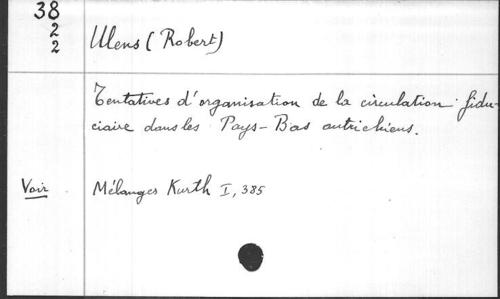 38
2
2
Ulens (Robert)
Tentatives d'organisation de la circulation fidu-
ciaire dans les Pays-Bas autrichiens.
Voir Mélanges Kurth I, 385